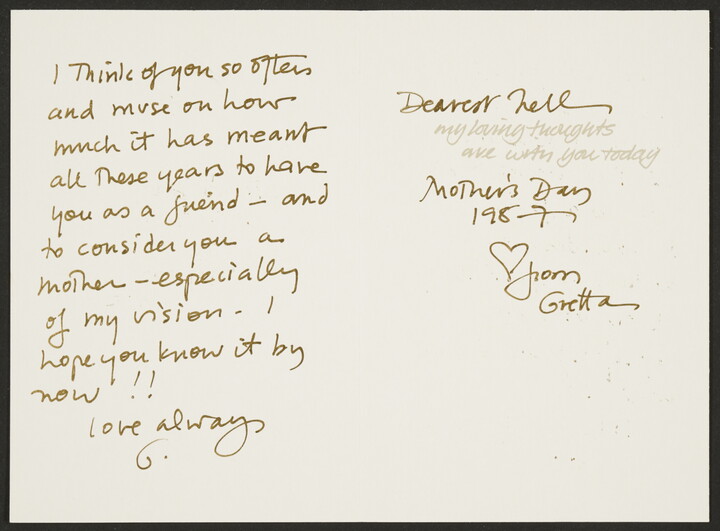 I Think of you so often
and muse on how
much it has meant
all These years to have
you as a friend – and
to consider you a
mother – especially
of my vision – I
hope you know it by
now !!
love always
G.
Dearest Nell
my loving thoughts
are with you today
Mother's Day
1987
♡ from
Gretta